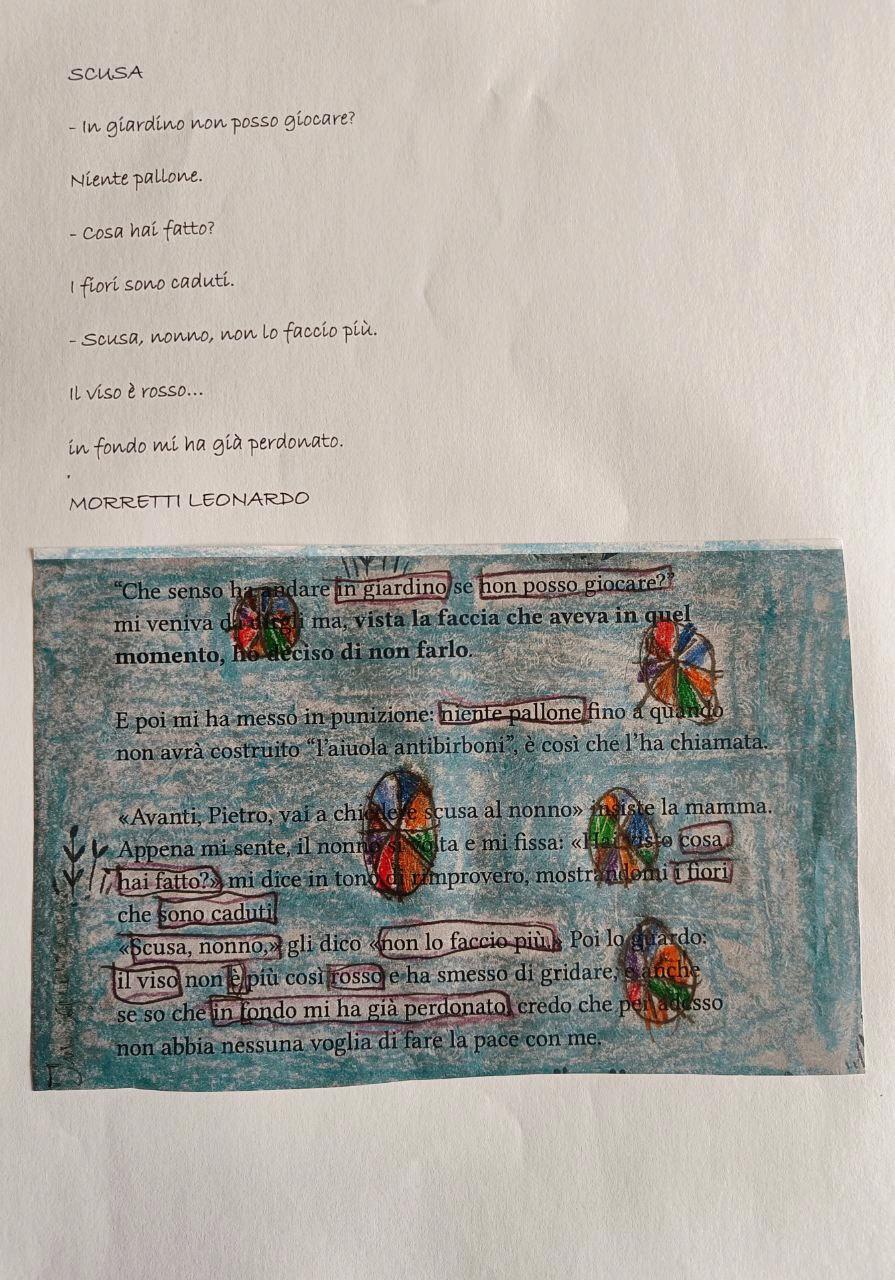 SCUSA
- In giardino non posso giocare?
Niente pallone.
- Cosa hai fatto?
I fiori sono caduti.
- Scusa, nonno, non lo faccio più.
Il viso è rosso...
in fondo mi ha già perdonato.
.
MORRETTI LEONARDO
“Che senso ha andare in giardino se non posso giocare?”
mi veniva da dirgli ma, vista la faccia che aveva in quel
momento, ho deciso di non farlo.
E poi mi ha messo in punizione: niente pallone fino a quando
non avrà costruito “l’aiuola antibirboni”, è così che l’ha chiamata.
«Avanti, Pietro, vai a chiedere scusa al nonno» insiste la mamma.
Appena mi sente, il nonno si volta e mi fissa: «Hai visto cosa
hai fatto?» mi dice in tono di rimprovero, mostrandomi i fiori
che sono caduti.
«Scusa, nonno,» gli dico «non lo faccio più.» Poi lo guardo:
il viso non è più così rosso e ha smesso di gridare, e anche
se so che in fondo mi ha già perdonato, credo che per adesso
non abbia nessuna voglia di fare la pace con me.